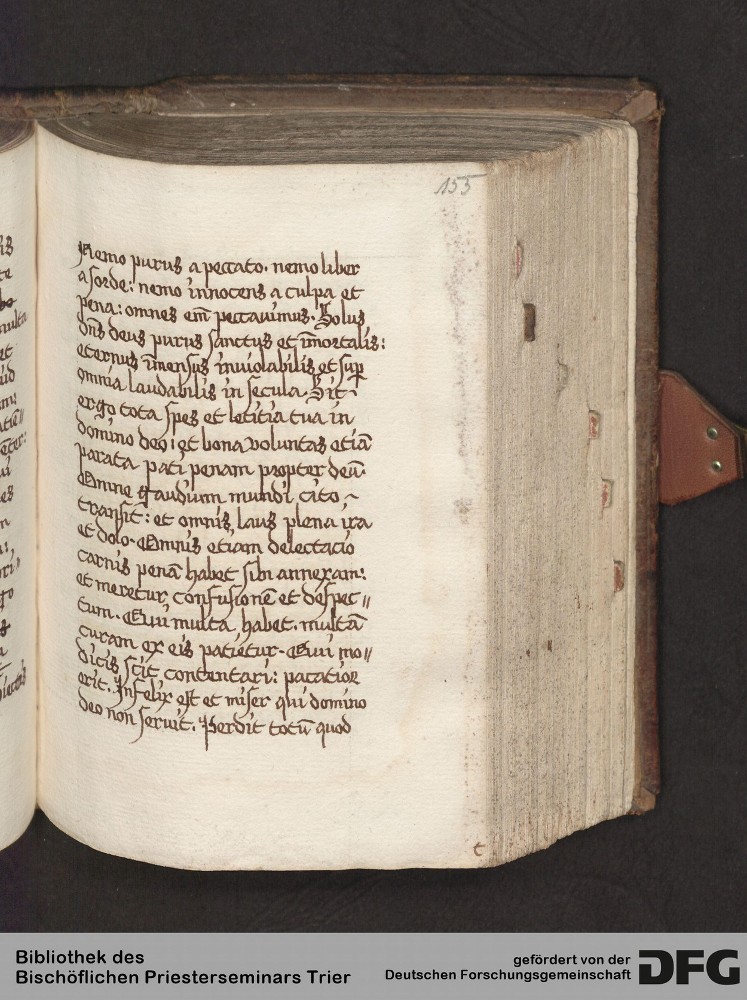 155
Nemo purus a peccato. nemo liber
a sorde: nemo innocens a culpa et
pena: omnes em̄ peccauimus. Solus
dn̄s deus purus sanctus et īmortalis:
eternus īmensus inuiolabilis et sup̄
omnia laudabilis in secula. Sit
ergo tota spes et letitia tua in
domino deo: et bona voluntas etiā
parata pati penam propter deū.
Omne gaudium mundi cito
transit: et omnis laus plena ira
et dolo. Omnis etiam delectacio
carnis penā habet sibi annexam:
et meretur confusionē et despec〃
tum. Qui multa habet. multā
curam ex eis patietur. Qui mo〃
dicis scit contentari: pacatior
erit. Infelix est et miser qui domino
deo non seruit. Perdit totū quod
t
Bibliothek des
Bischöflichen Priesterseminars Trier
gefördert von der
Deutschen Forschungsgemeinschaft
DFG